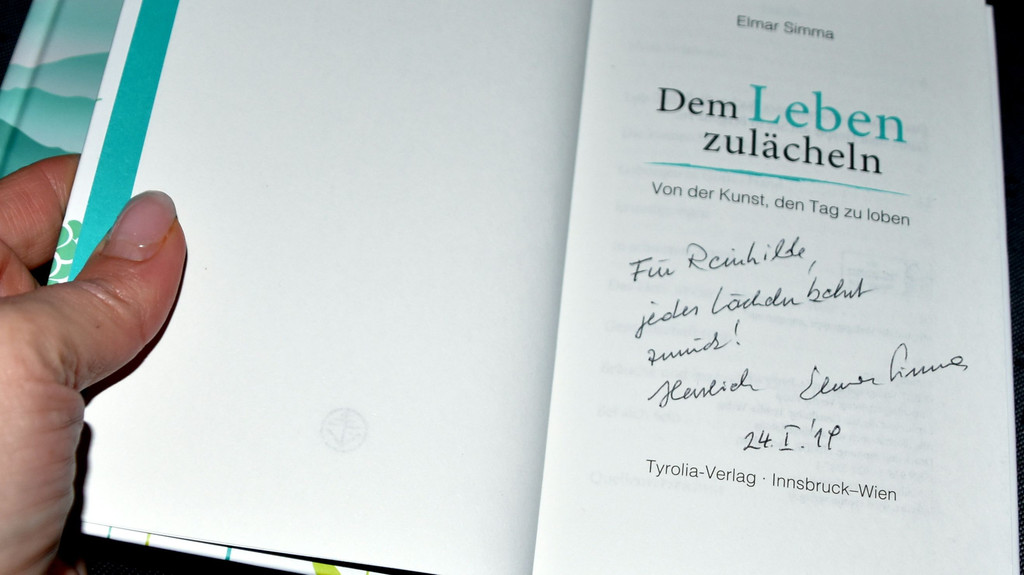 Elmar Simma
Dem Leben
zulächeln
Von der Kunst, den Tag zu loben
Für Reinhilde,
jedes Lächeln kehrt
zurück!
Herzlich Elmar Simma
24. I. '19
Tyrolia-Verlag · Innsbruck–Wien